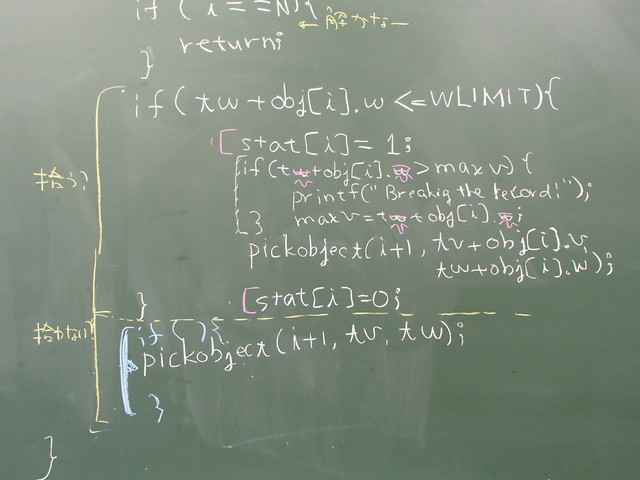 if ( i == N){
return;
}
if ( tw + obj[i].w <= WLIMIT){
stat[i] = 1;
拾う?
if (tv + obj[i].v > max v) {
printf("Breaking the record!");
max v = tv + obj[i].v;
}
pickobject(i+1, tv + obj[i].v,
tw + obj[i].w);
stat[i]=0;
}
拾わない?
if ( ) {
pickobject (i+1, tv, tw);
}
}